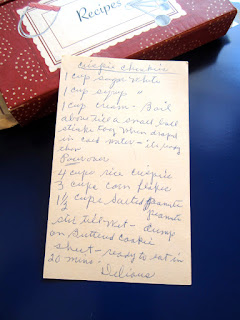 Recipes
Crispie Chewies
1 cup sugar white
1 cup syrup "
1 cup cream - Boil
above till a small ball
sticks tog when droped
in cold water - its very
chewy
Pour over
4 cups rice crispie
3 cups corn flakes
1 1/2 cups salted peanuts
peanuts
stir till wet - dump
on buttered cookie
sheet - ready to eat in
20 mins.
Delious